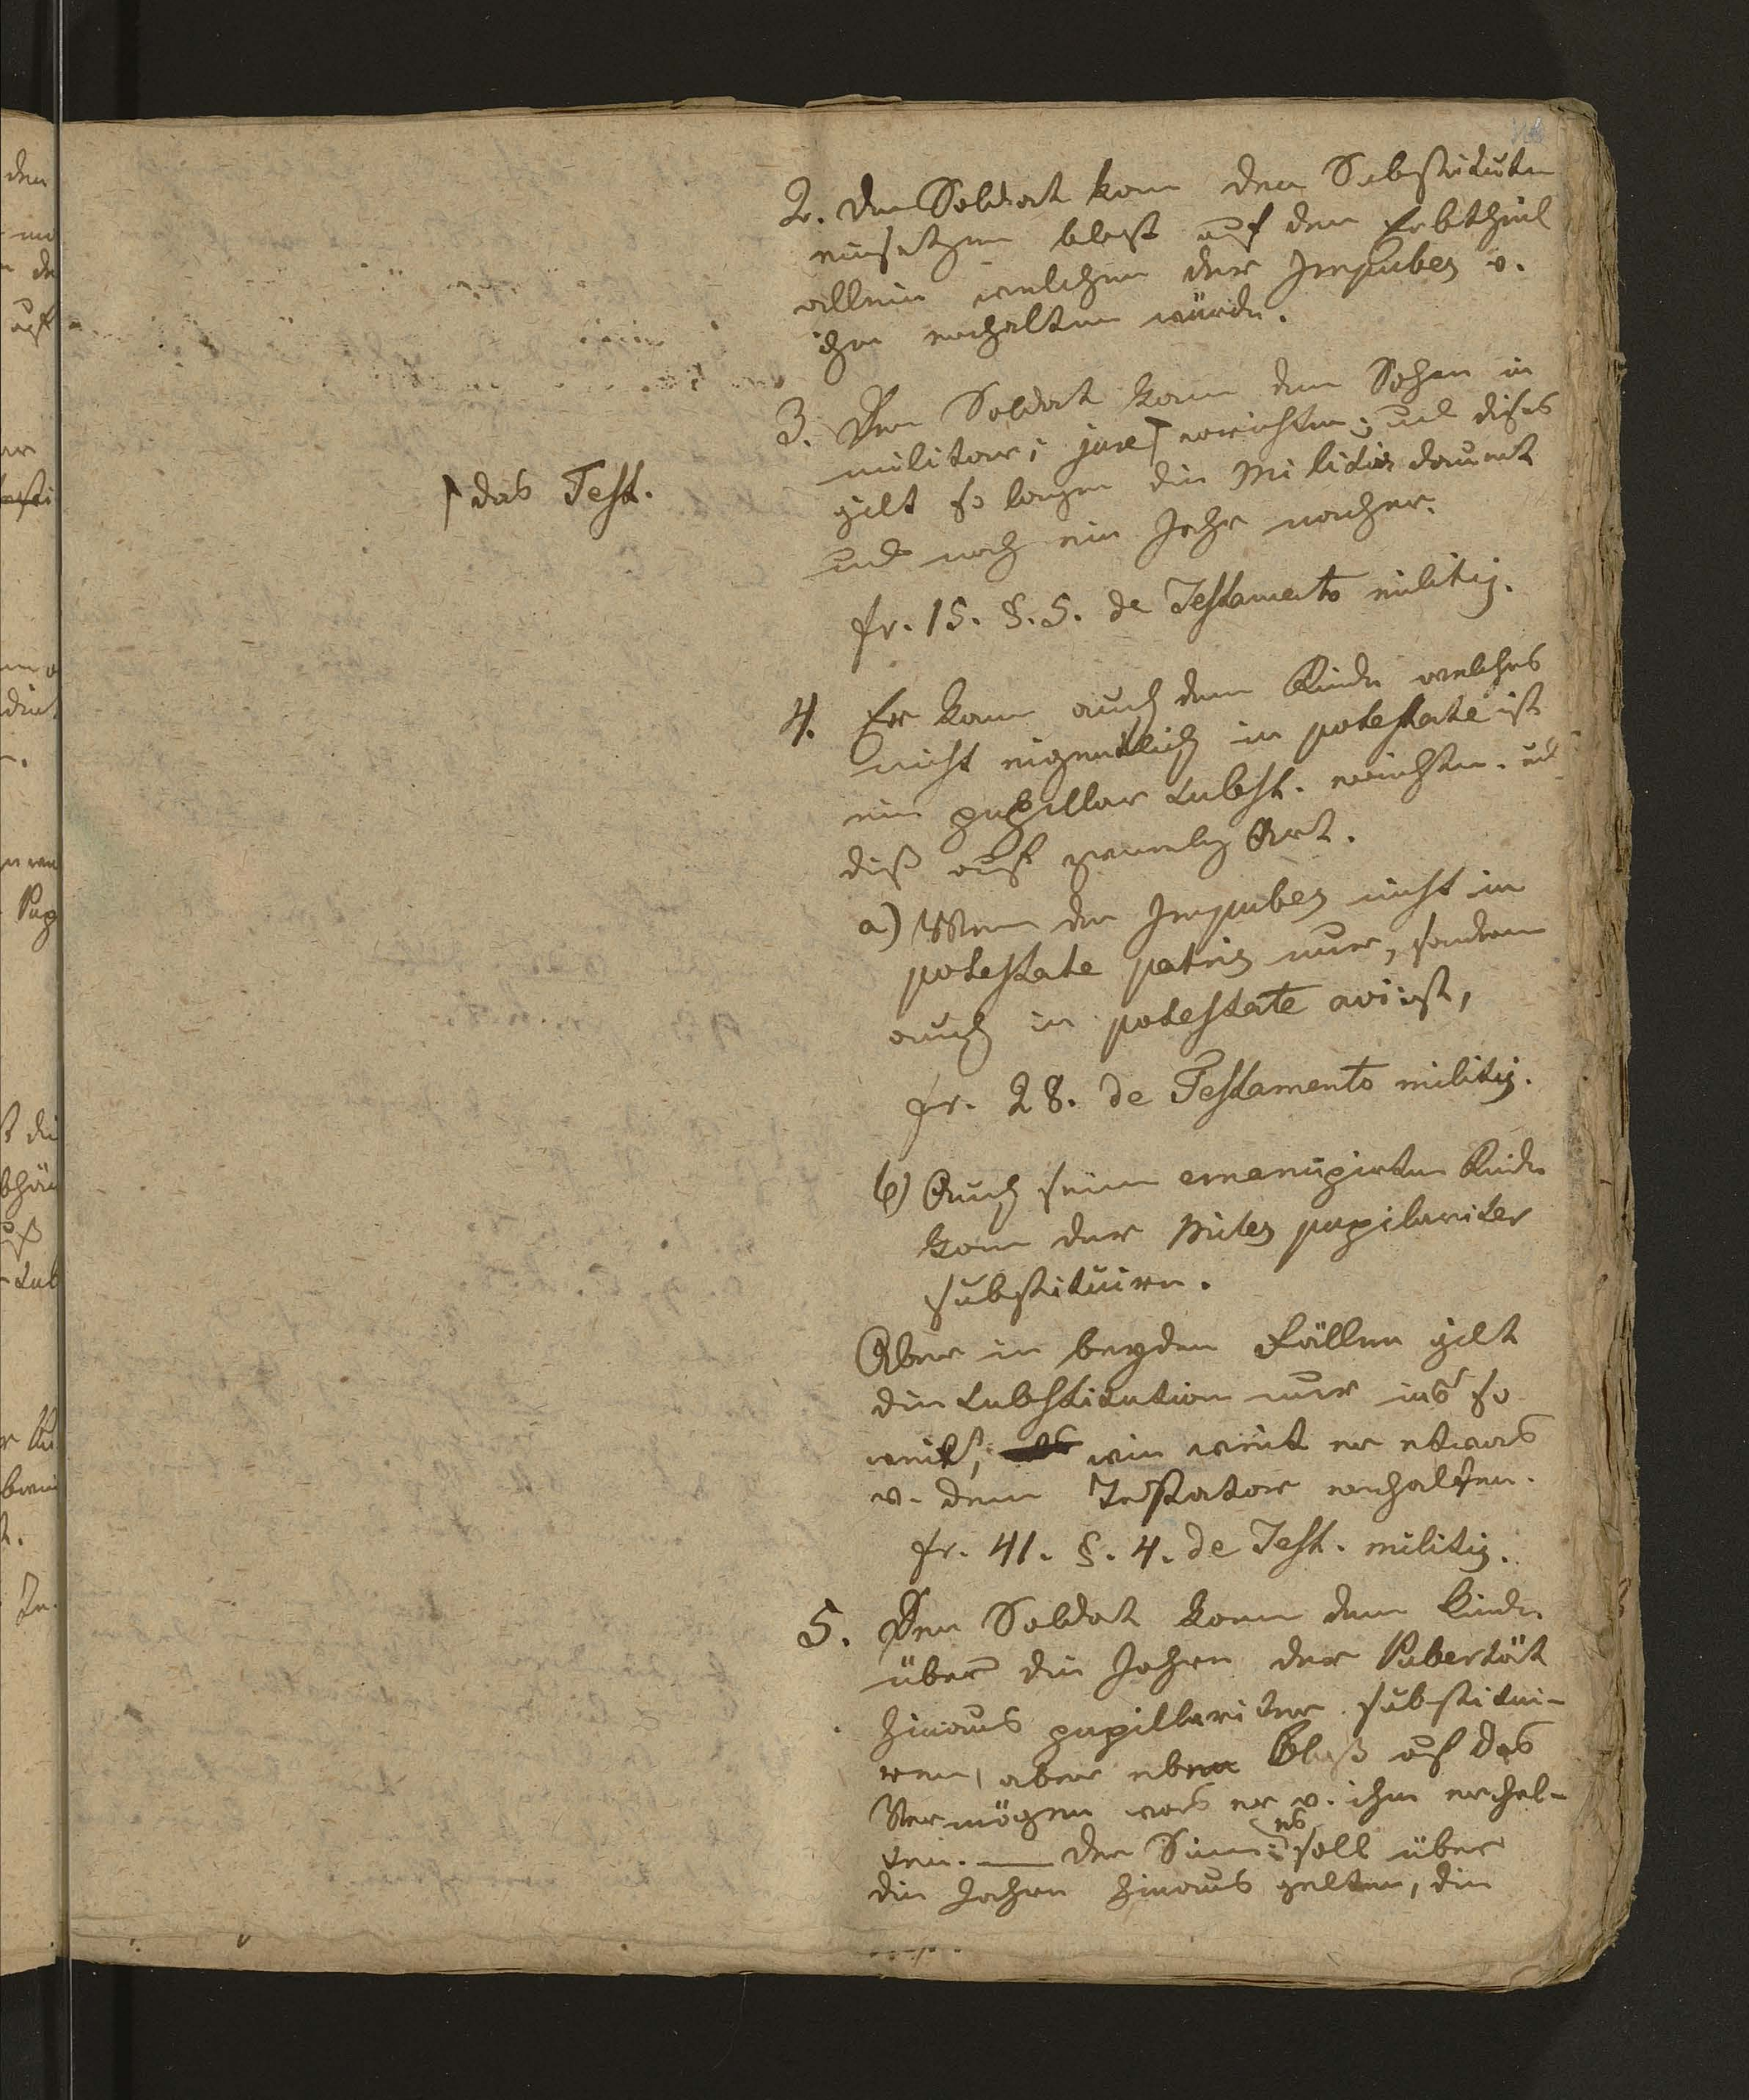 2. Der Soldat kann den Substituten
einsetzen blos auf den Erbtheil
allein welchen der Impubes v.
ihm erhalten würde.
3. Der Soldat kann dem Sohne in
militari jure ⌈ errichten; und dises
gilt so lange die Militia dauert
und noch ein Jahr nacher.
⌈ das Test.
fr. 15. §. 5. de Testamento militis.
4. Er kann auch dem Kinde welches
nicht eigentlich in potestate ist
ein pupillar Subst. errichten. und
diß auf zweierley Art.
a) Wenn der Impubes nicht in
potestate patris nur, sondern
auch in potestate avi ist,
fr. 28. de Testamento militis.
b) Auch seinem emancipirten Kinde
kann der Miles pupilariter
substituiren.
Aber in beyden Fällen gilt
die Substitution nur in so
weit, wie weit er etwas
v. dem Testator erhalten.
fr. 41. §. 4. de Test. militis.
5. Der Soldat kann dem Kinde
über die Jahre der Pubertät
hinaus pupillariter substitui-
ren, aber eben bloß auf das
Vermögen was er v. ihm erhal-
ten. — Der Sinn: es soll über
die Jahre hinaus gelten, die